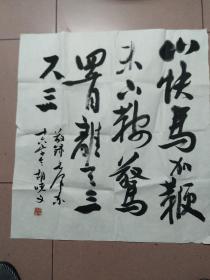 山快馬加鞭
未下鞍驚
回首離天三
尺三
十六字令